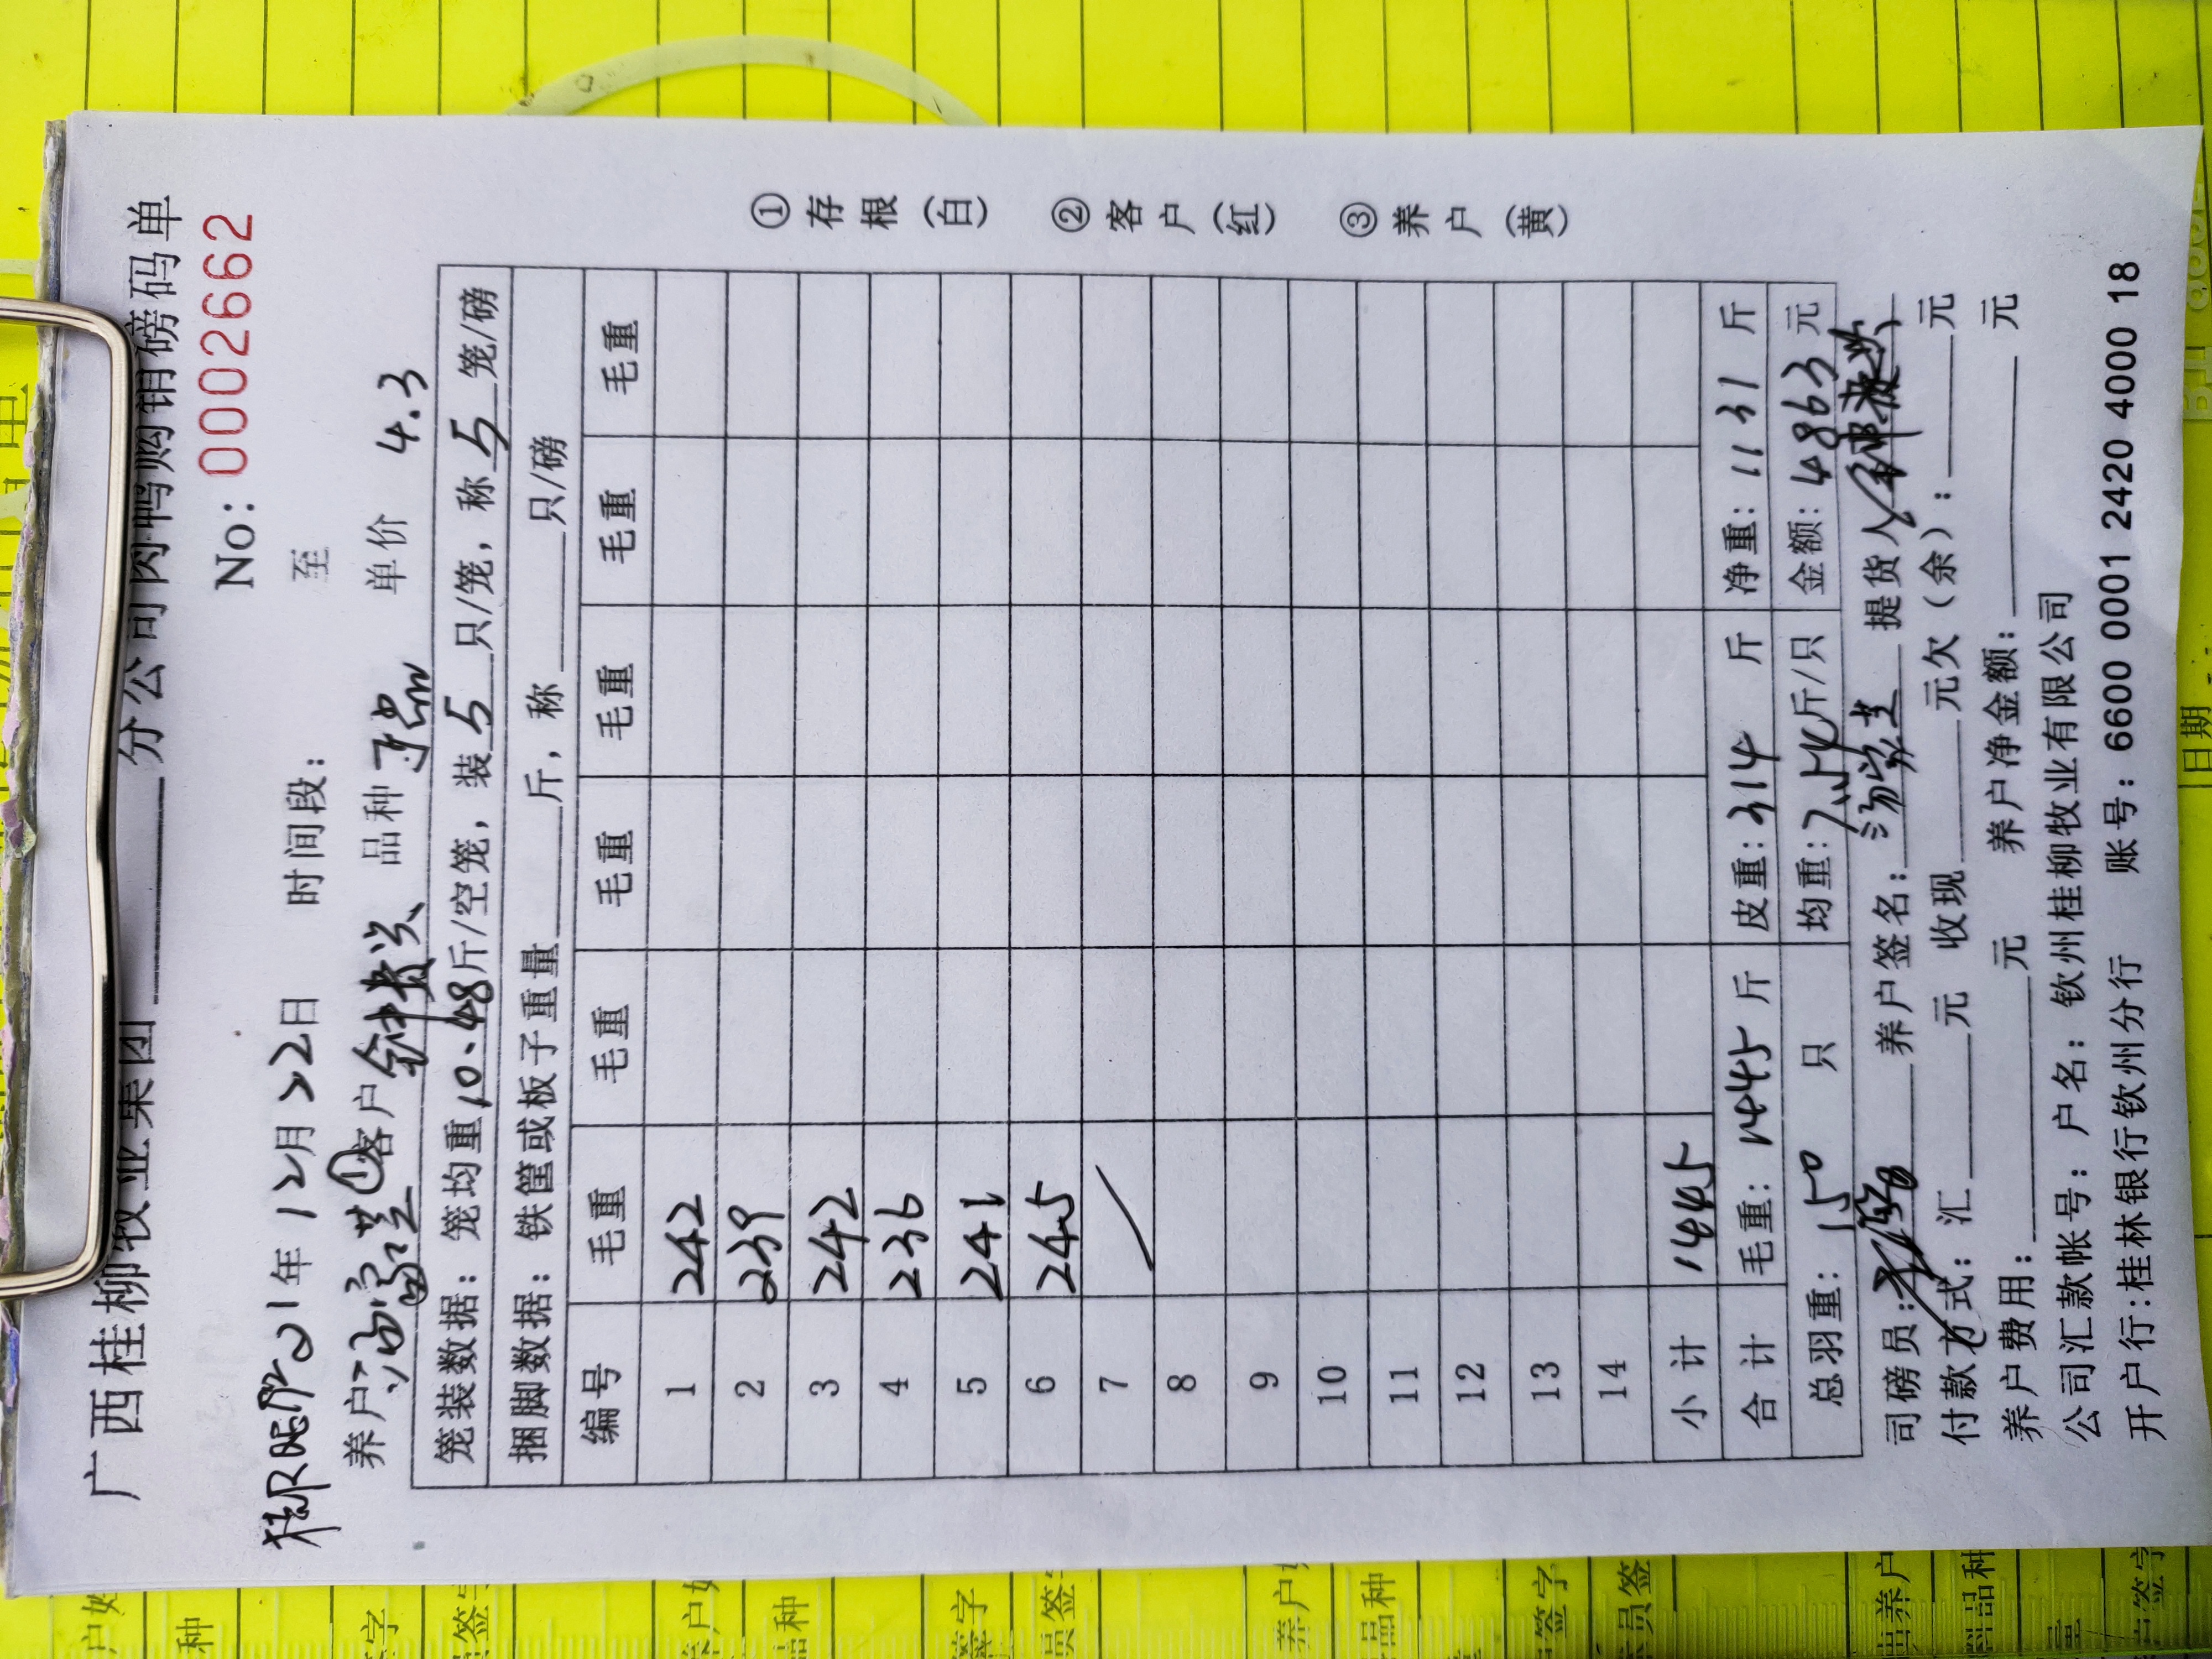 广西桂柳牧业集团 分公司肉鸭购销磅码单
No: 0002662
21年12月22日 时间段: 至
养户 ① 客户 品种 单价 4.3
笼装数据: 笼均重10.48斤/空笼, 装5只/笼, 称5笼/磅
捆脚数据: 铁筐或板子重量 斤, 称 只/磅
编号 毛重 毛重 毛重 毛重 毛重 毛重
1 242
2 239
3 242
4 236
5 241
6 245
7
8
9
10
11
12
13
14
小计 1445
合计 毛重: 1445 斤 皮重: 314 斤 净重: 1131 斤
总羽重: 150 只 均重: 7.54斤/只 金额: 4863 元
司磅员: 养户签名: 提货人
付款方式: 汇 元 收现 元欠(余): 元
养户费用: 元 养户净金额: 元
公司汇款帐号: 户名: 钦州桂柳牧业有限公司
开户行:桂林银行钦州分行 账号: 6600 0001 2420 4000 18
①存根(白) ②客户(红) ③养户(黄)
日期